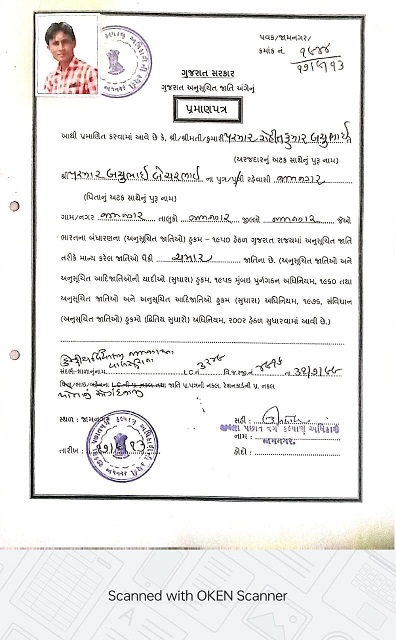 પવક/જામનગર/
ક્રમાંક નં. ૧૯૪૪
૧૧/૬/૧૩
ગુજરાત સરકાર
ગુજરાત અનુસૂચિત જાતિ અંગેનું
પ્રમાણપત્ર
આથી પ્રમાણિત કરવામાં આવે છે કે, શ્રી/શ્રીમતી/કુમારી પરમાર રોહીતકુમાર બચુભાઈ
(અરજદારનું અટક સાથેનું પુરૂ નામ)
શ્રી પરમાર બચુભાઈ બેચરભાઈ ના પુત્ર/પુત્રી રહેવાસી જામનગર
(પિતાનું અટક સાથેનું પુરૂ નામ)
ગામ/નગર જામનગર તાલુકો જામનગર જીલ્લો જામનગર જેઓ
ભારતના બંધારણના (અનુસૂચિત જાતિઓ) હુકમ - ૧૯૫૦ હેઠળ ગુજરાત રાજ્યમાં અનુસૂચિત જાતિ
તરીકે માન્ય કરેલ જાતિઓ પૈકી ચમાર જાતિના છે. (અનુસૂચિત જાતિઓ અને
અનુસૂચિત આદિજાતિઓની યાદીઓ (સુધારા) હુકમ, ૧૯૫૬ મુંબઇ પુર્નગઠન અધિનિયમ, ૧૯૬૦ તથા
અનુસૂચિત જાતિઓ અને અનુસૂચિત આદિજાતિઓ હુકમ (સુધારા) અધિનિયમ, ૧૯૭૬, સંવિધાન
(અનુસૂચિત જાતિઓ) હુકમો (દ્વિતિય સુધારો) અધિનિયમ, ૨૦૦૨ હેઠળ સુધારવામાં આવી છે.)
સંદર્ભ-શાળાનુંનામ LC નં વિ.ર.જી.નં તા
L.C ની પ્ર. નકલ તથા જાતિ પ્ર.પત્રની નકલ, રેશનકાર્ડની પ્ર. નકલ
સ્થળ : જામનગર
સહી :
જીલ્લા પછાત વર્ગ કલ્યાણ અધિકારી
નામ :
જામનગર
તારીખ : ૧૧/૬/૧૩
હોદ્દો :
Scanned with OKEN Scanner